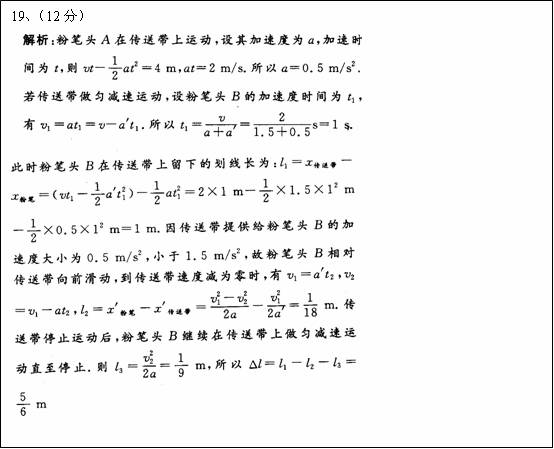 19、(12分)
解析:粉笔头 A 在传送带上运动,设其加速度为 a,加速时
间为 t,则 vt-\frac{1}{2}at²=4 m,at=2 m/s. 所以 a=0.5 m/s².
若传送带做匀减速运动,设粉笔头 B 的加速度时间为 t₁,
有 v₁=at₁=v-a't₁. 所以 t₁=\frac{v}{a+a'}=\frac{2}{1.5+0.5}s=1 s.
此时粉笔头 B 在传送带上留下的划线长为:l₁=x传送带-
x粉笔=(vt₁-\frac{1}{2}a't₁²)-\frac{1}{2}at₁²=2×1 m-\frac{1}{2}×1.5×1² m
-\frac{1}{2}×0.5×1² m=1 m. 因传送带提供给粉笔头 B 的加
速度大小为 0.5 m/s²,小于 1.5 m/s²,故粉笔头 B 相对
传送带向前滑动,到传送带速度减为零时,有 v₁=a't₂,v₂
=v₁-at₂,l₂=x'粉笔-x'传送带=\frac{v₁²-v₂²}{2a}-\frac{v₁²}{2a'}=\frac{1}{18} m. 传
送带停止运动后,粉笔头 B 继续在传送带上做匀减速运
动直至停止. 则 l₃=\frac{v₂²}{2a}=\frac{1}{9} m,所以 Δl=l₁-l₂-l₃=
\frac{5}{6} m